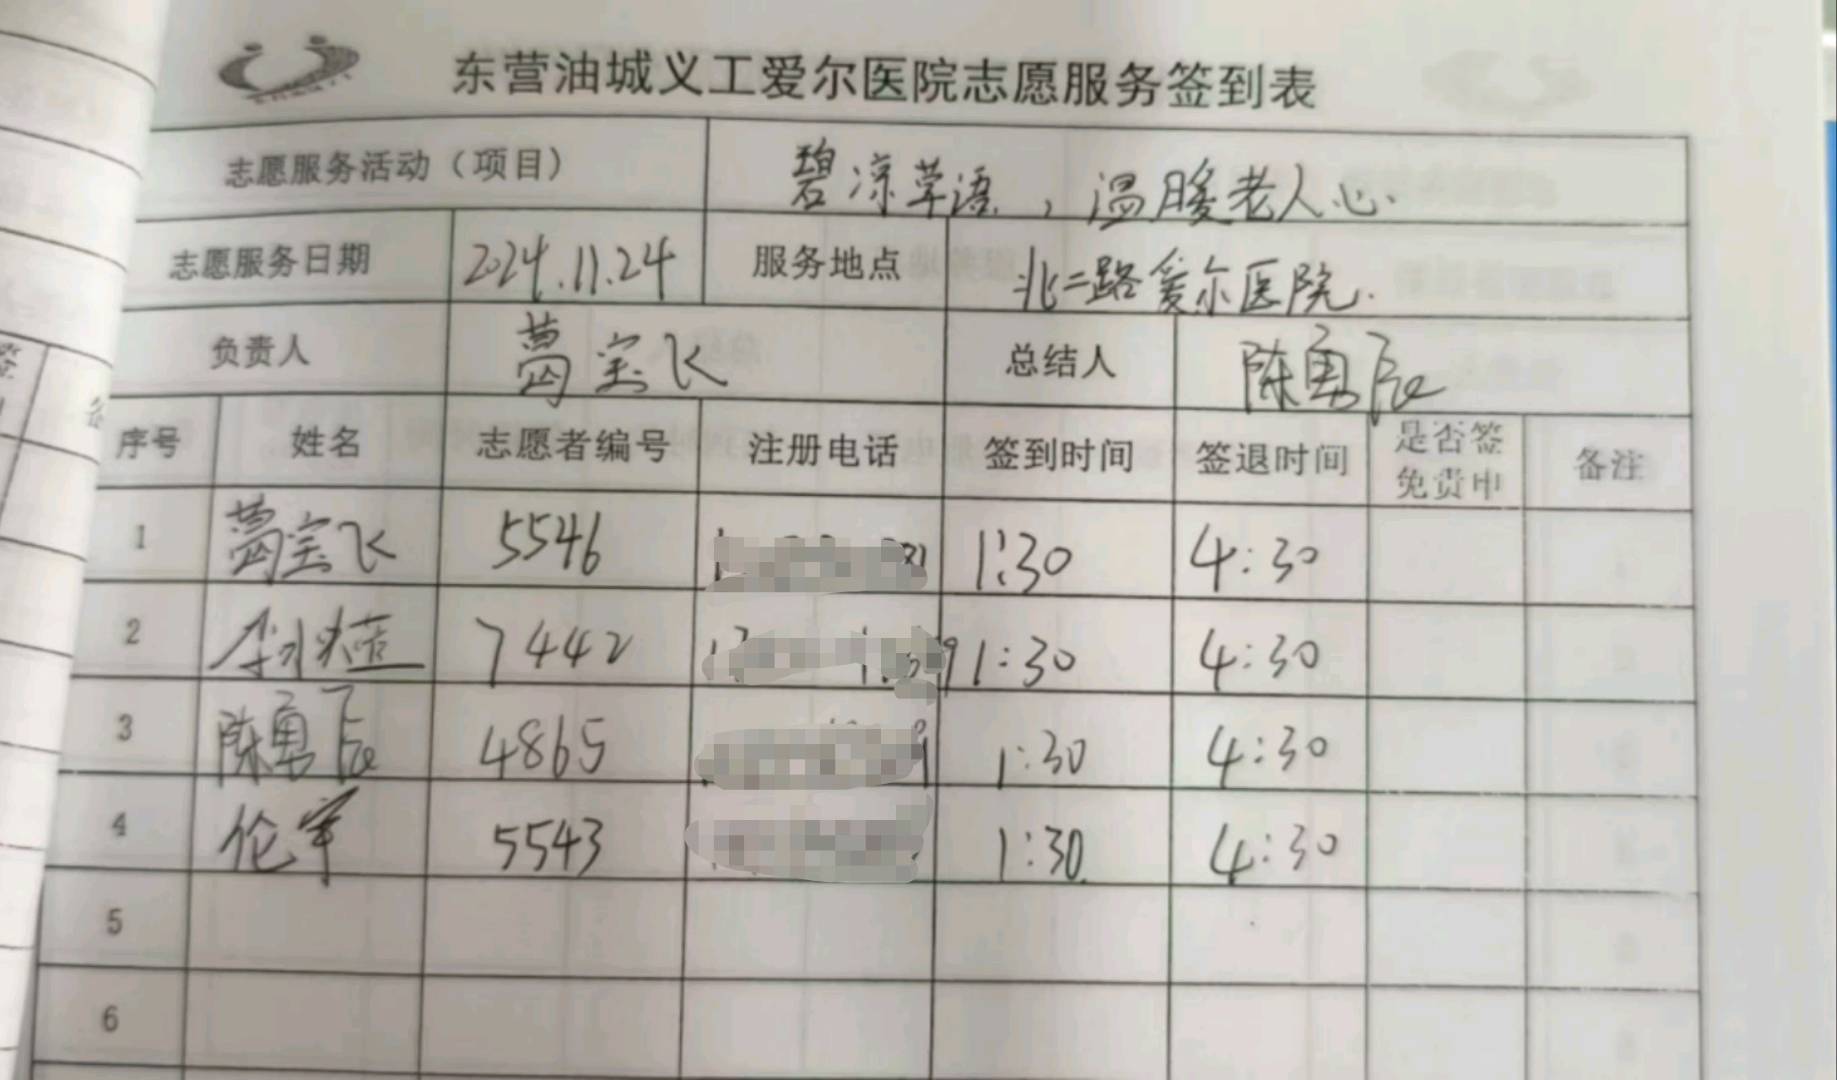 东营油城义工爱尔医院志愿服务签到表
志愿服务活动（项目） 碧凉草语，温暖老人心.
志愿服务日期 2024.11.24 服务地点 北二路爱尔医院.
负责人 葛宝飞 总结人 陈勇辰
序号 姓名 志愿者编号 注册电话 签到时间 签退时间 是否签免责申 备注
1 葛宝飞 5546 1:30 4:30
2 7442 1:30 4:30
3 陈勇辰 4865 1:30 4:30
4 伦军 5543 1:30 4:30
5
6